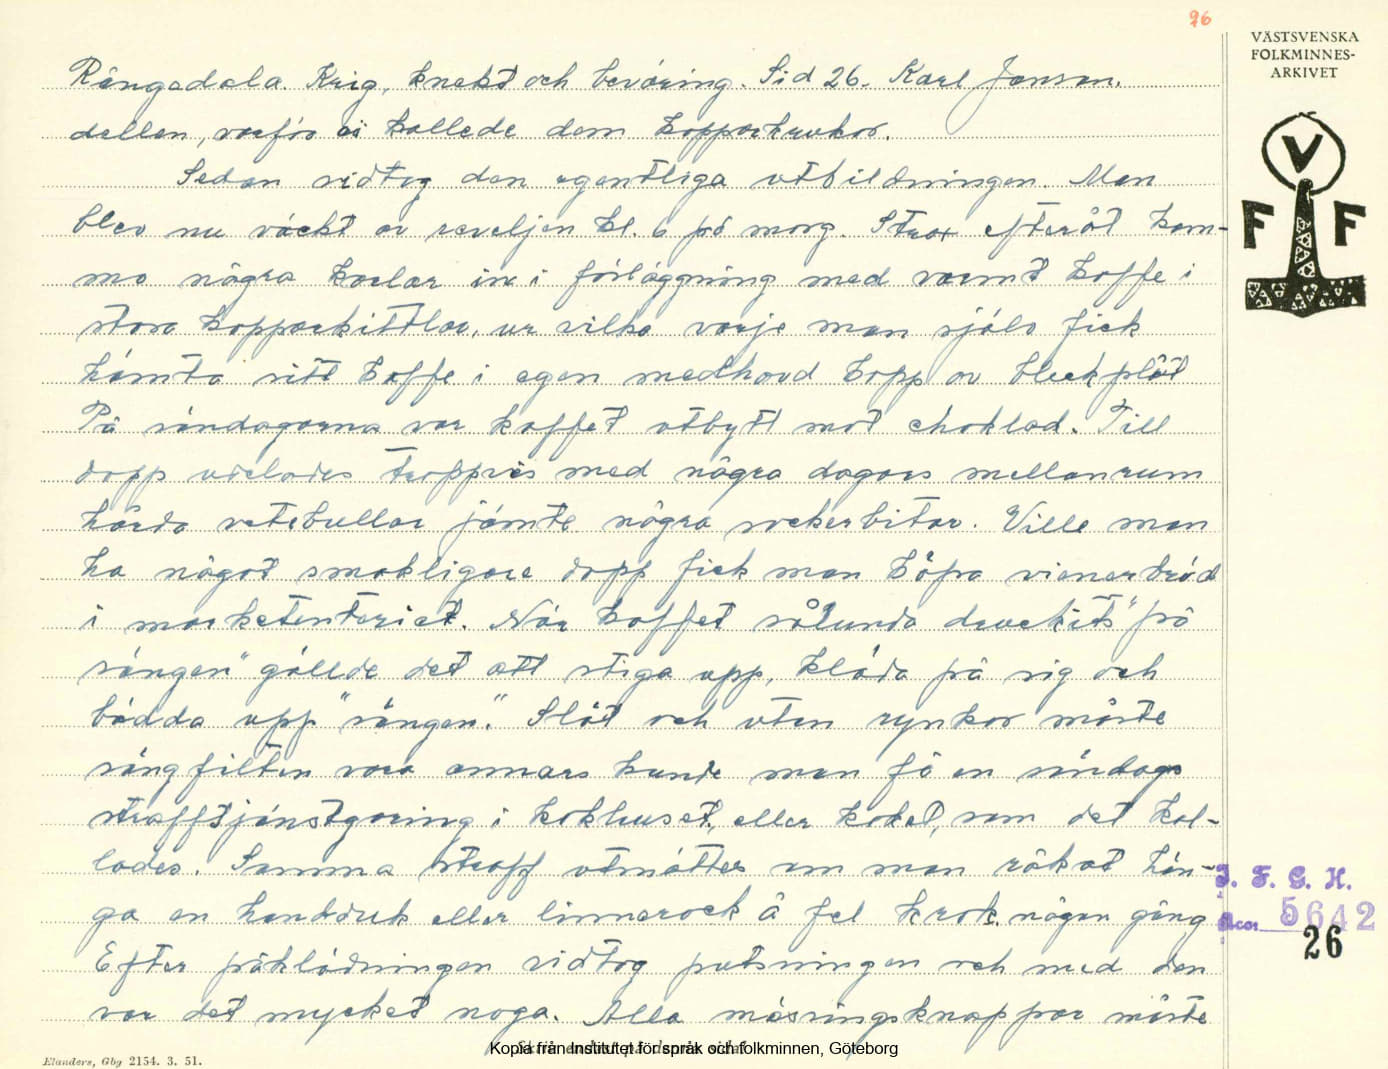 26
VÄSTSVENSKA
FOLKMINNES-
ARKIVET
V
F F
Rångedala. Krig, knekt och beväring. Sid 26. Karl Jonson.
dellen, varför vi kallede dem kopparkrukor.
Sedan vidtog den egentliga utbildningen. Man
blev nu väckt av reveljen kl. 6 på morg. Strax efteråt kom-
mo några karlar in i förläggning med varmt kaffe i
stora kopparkittlar, ur vilka varje man själv fick
hämta sitt kaffe i egen medhavd kopp av bleckplåt
På söndagarna var kaffet utbytt mot choklad. Till
dopp utdelades troppvis med några dagars mellanrum
hårda vetebullar jämte några sockerbitar. Ville man
ha något smakligare dopp fick man köpa vienerbröd
i marketenteriet. När kaffet sålunda druckits "på
sängen" gällde det att stiga upp, kläda på sig och
bädda upp "sängen." Slät och utan rynkor måste
sängfilten vara annars kunde man få en söndags
strafftjänstgöring i kokhuset, eller koket, som det kal-
lades. Samma straff utmättes om man råkat hän-
ga en handduk eller linnerock å fel krok någon gång
Efter påklädningen vidtog putsningen och med den
var det mycket noga. Alla mässingsknappar måste
I. F. G. H.
Acc. 5642
26
Kopia från Institutet för språk och folkminnen, Göteborg
Elanders, Gbg 2154. 3. 51.